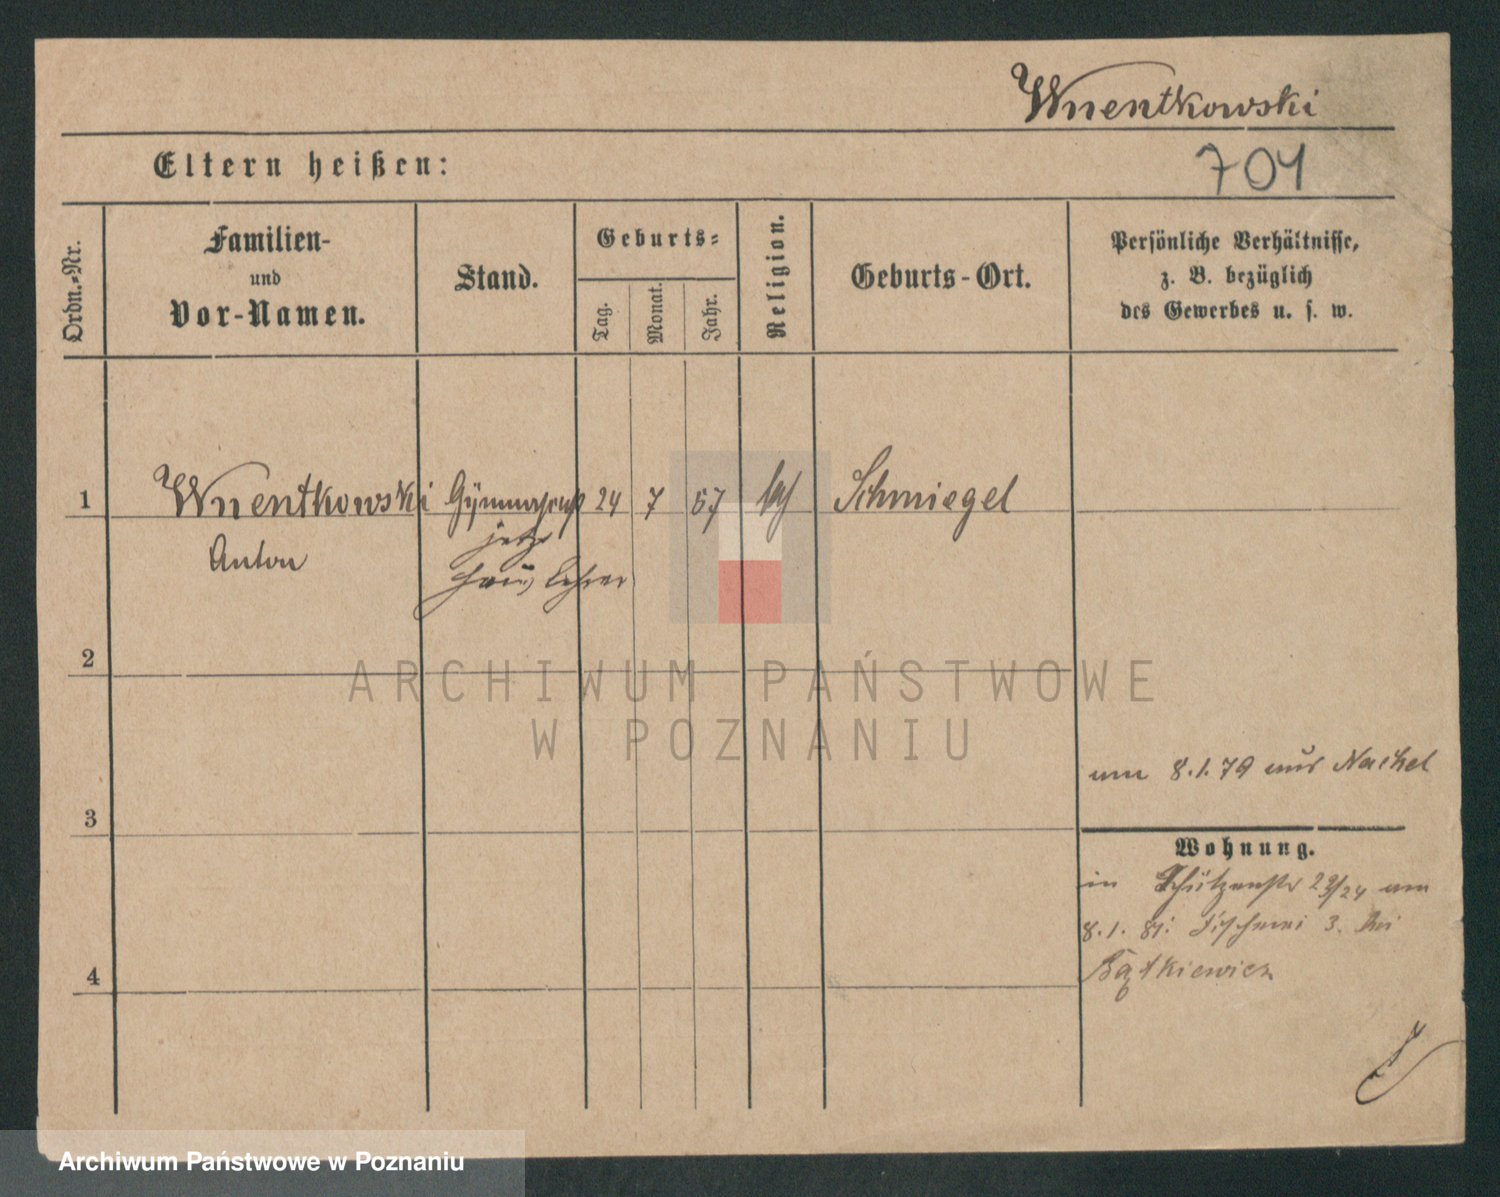 Wnentkowski
Eltern heißen:
701
Ordn.=Nr.
Familien-
und
Vor-Namen.
Stand.
Geburts=
Tag.
Monat.
Jahr.
Religion.
Geburts-Ort.
Persönliche Verhältnisse,
z. B. bezüglich
des Gewerbes u. s. w.
1
Wnentkowski
Anton
jetzt
Lehrer
24
7
57
kath
Schmiegel
2
ARCHIWUM PAŃSTWOWE
W POZNANIU
3
am 8.1.79 aus Nackel
Wohnung.
in Schützenstr am
8.1. 81: Fischerei 3. bei
4
Bątkiewicz
Archiwum Państwowe w Poznaniu